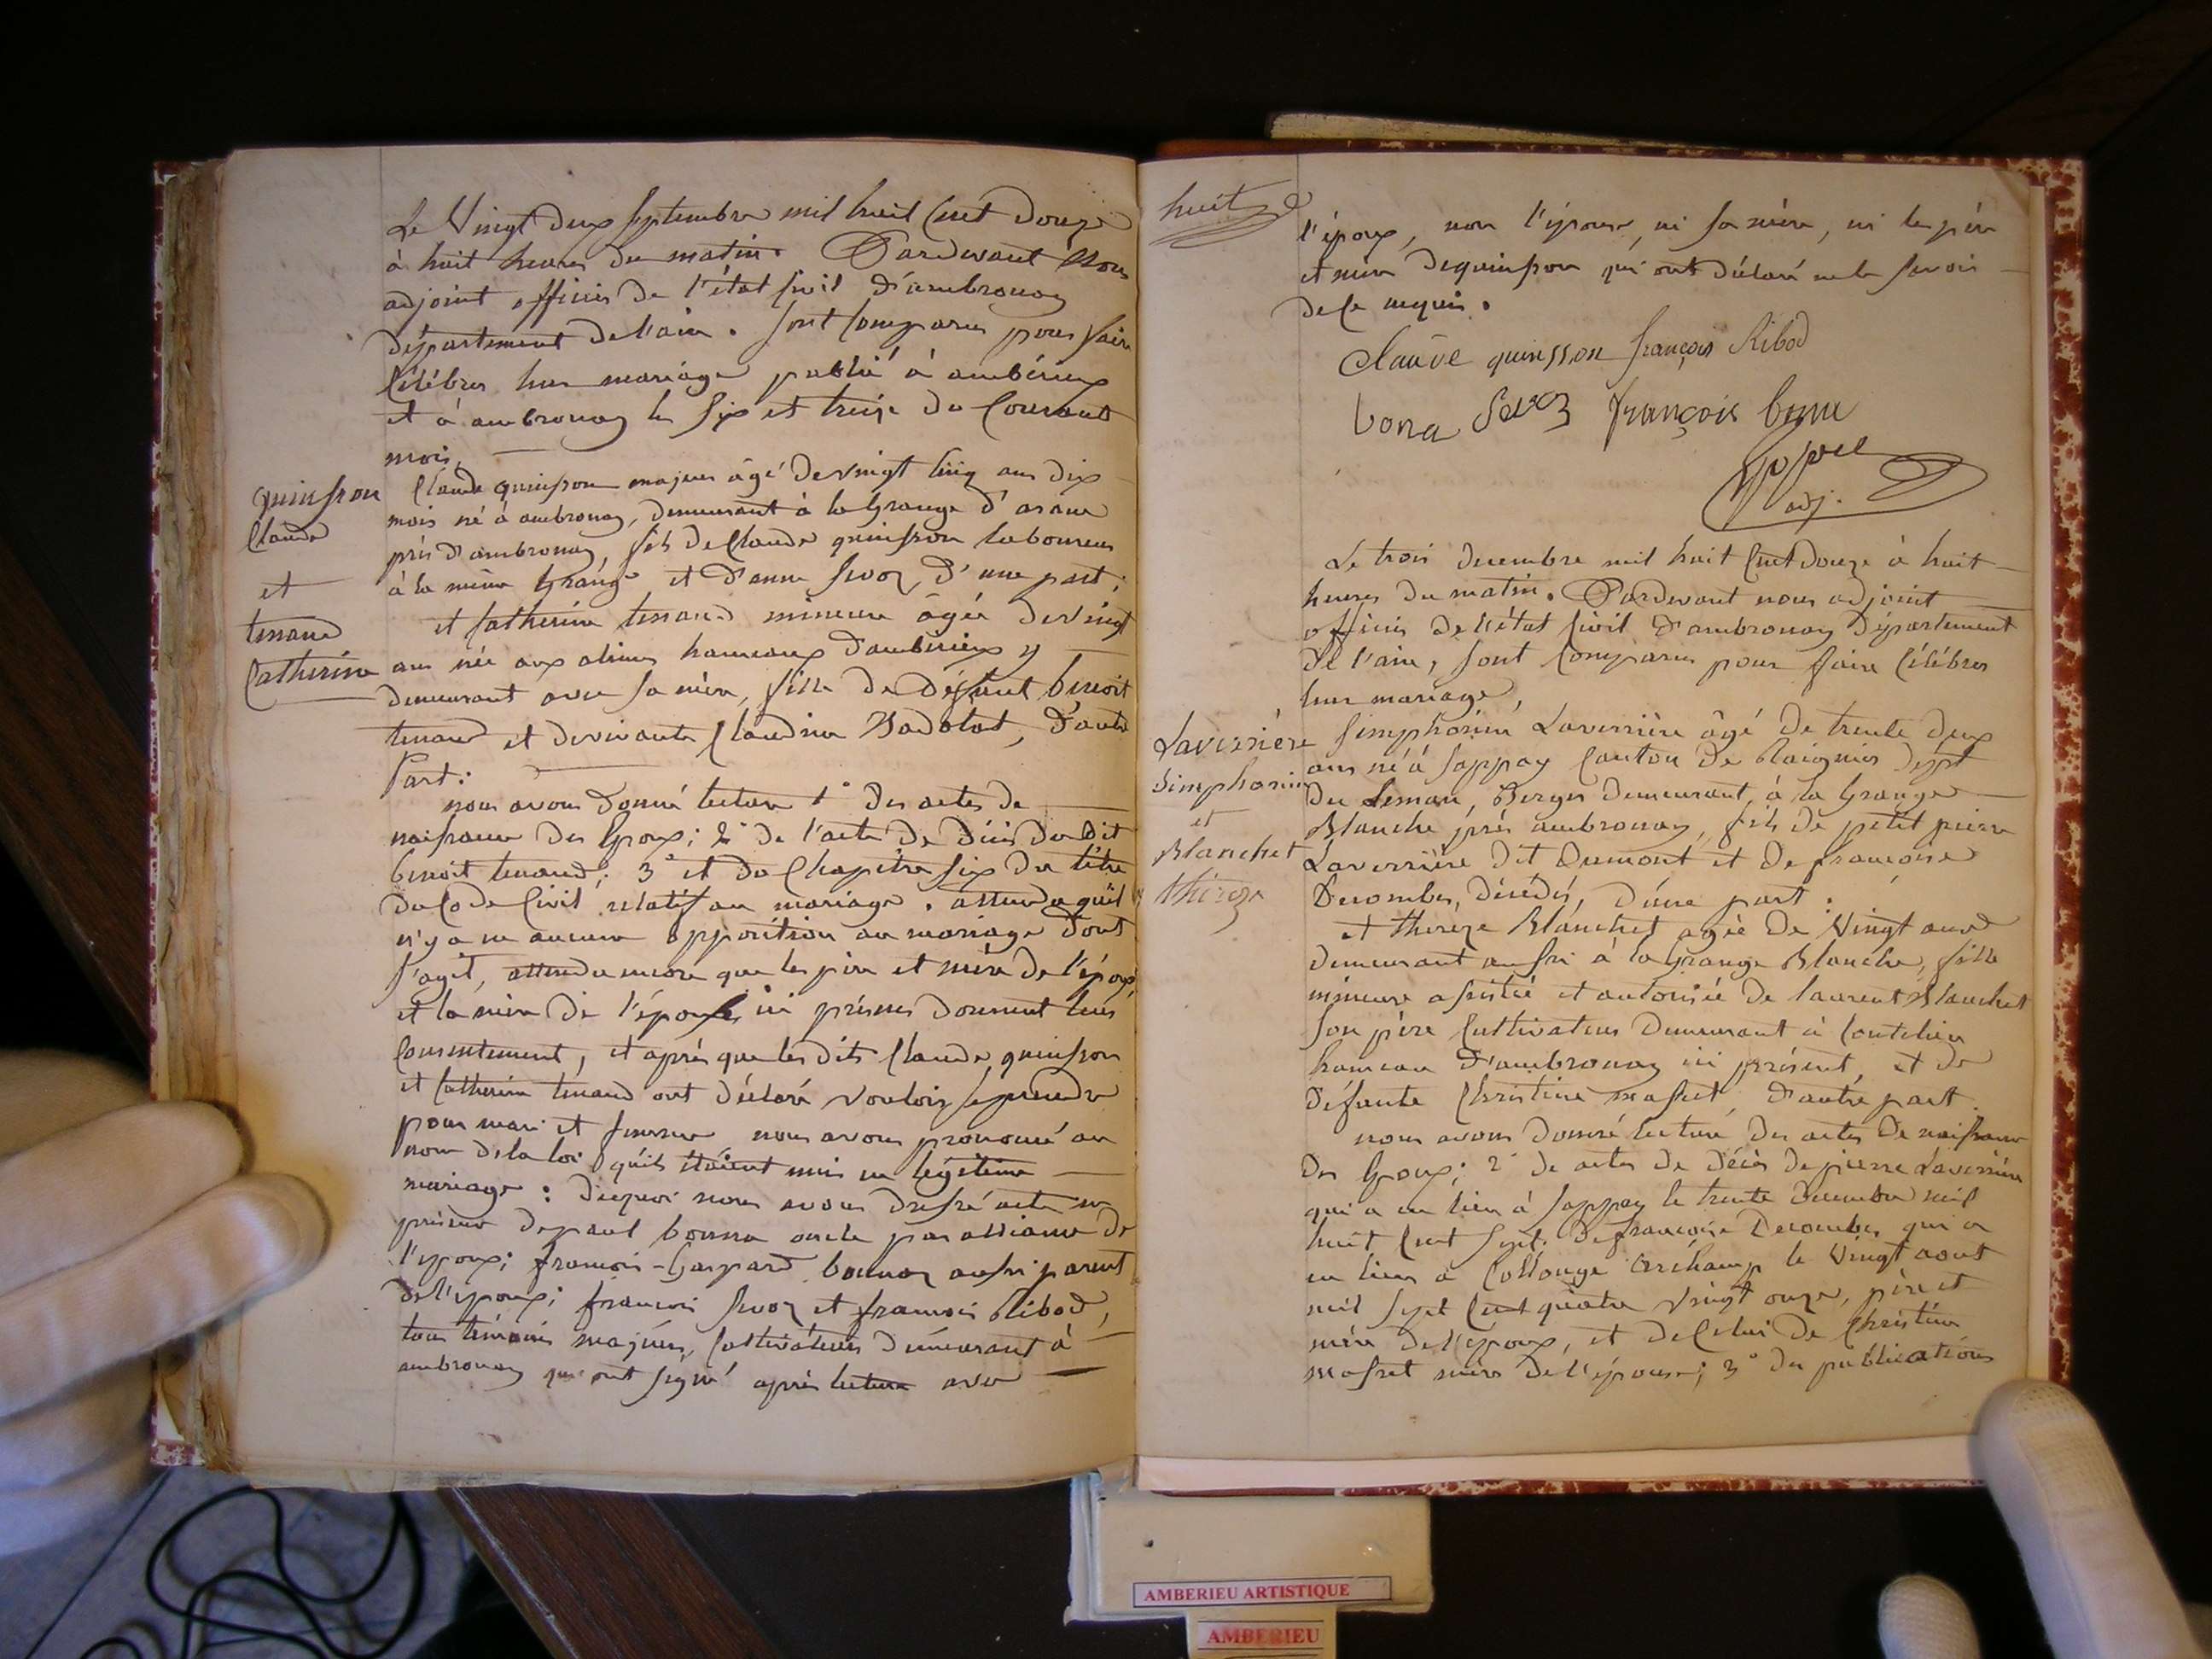 Le Vingt deux septembre mil huit Cent Douze
à huit heures du matin. Pardevant Nous
adjoint officier de l'état Civil d'ambronay
département de l'ain. sont Comparus pour faire
Célébrer leur mariage publié à ambérieux
et à ambronay les six et treize du Courant
mois,
quinsson
Claude
et
tenand
Catherine
Claude quinsson majeur âgé de vingt cinq ans dix
mois né à ambronay, demeurant à la Grange d'
près d'ambronay, fils de Claude quinsson laboureur
à la même Grange et d'anne d'une part;
et Catherine tenand mineure âgée de vingt
ans née aux hameaux d'ambérieux y
demeurant avec sa mère, fille de défunt benoit
tenand et de vivante Claudine Badolat, d'autre
Part:
nous avons donné lecture 1° des actes de
naissance des Epoux; 2° de l'acte de décès du dit
benoit tenand; 3° et du Chapitre six du titre
du Code Civil relatif au mariage. attendu qu'il
n'y a eu aucune opposition au mariage dont
s'agit, attendu encore que les père et mère de l'époux,
et la mère de l'épouse ici présens donnent leur
Consentement, et après que les dits Claude quinsson
et Catherine tenand ont déclaré vouloir se prendre
pour mari et femme nous avons prononcé au
nom de la loi qu'ils étaient unis en légitime
mariage: de quoi nous avons dressé acte en
présence de paul bonna oncle par alliance de
l'epoux; francois-Gaspard aussi parent
de l'epoux; francois et francois Ribod,
tous témoins majeurs, Cultivateurs demeurant à
ambronay qui ont signé après lecture avec
huit
l'époux, non l'épouse, ni sa mère, ni les père
et mère de quinsson qui ont déclaré ne le savoir
de ce requis.
Claude quinsson françois Ribod
bona françois
adj.
Le trois decembre mil huit Cent Douze à huit
heures du matin. Pardevant nous adjoint
officier de l'état Civil d'ambronay Département
de l'ain, sont Comparus pour faire Célébrer
leur mariage,
Laverrière
Simphorien
et
Blanchet
thereze
Simphorien Laverrière âgé de trente deux
ans né à sappay Canton de Raignier dépt
du Leman, Berger demeurant à la Grange
Blanche près ambronay, fils de petit pierre
Laverrière dit Dumont et de françoise
Decombes, décédés, d'une part:
et thereze Blanchet agée de Vingt ans
demeurant aussi à la Grange Blanche, fille
mineure assistée et autorisée de laurent Blanchet
son père Cultivateur demeurant à Coutelieu
hameau d'ambronay ici présent, et de
défunte Christine d'autre part.
nous avons donné lecture des actes de naissance
des Epoux; 2° de actes de décès de pierre Laverrière
qui a eu lieu à sappay le trente decembre mil
huit Cent sept. De francoise Decombes qui a
eu lieu à Collonge archamp le Vingt aout
mil sept Cent quatre vingt onze, père et
mère de l'époux, et de Celui de Christine
mère de l'épouse; 3° des publications
AMBERIEU ARTISTIQUE
AMBERIEU